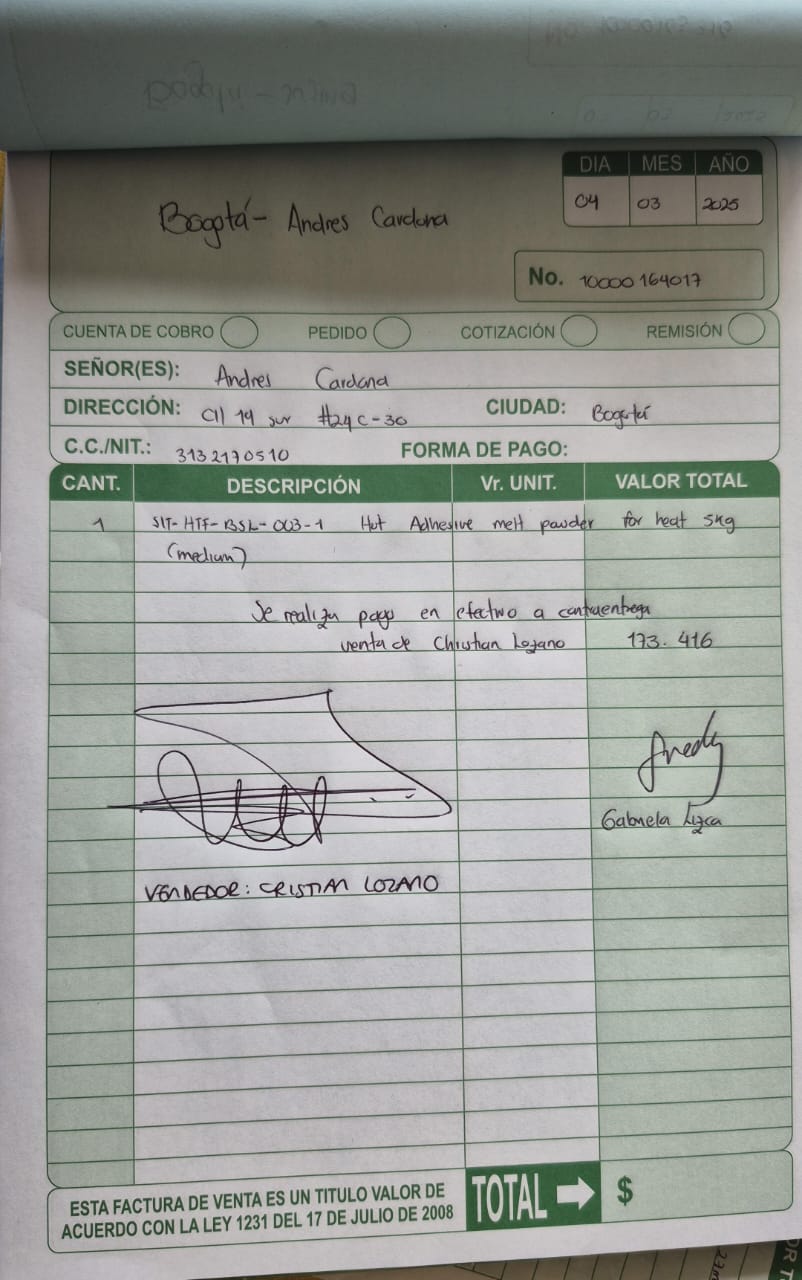 DIA MES AÑO
04 03 2025
Bogotá - Andres Cardona
No. 10000164017
CUENTA DE COBRO PEDIDO COTIZACIÓN REMISIÓN
SEÑOR(ES): Andres Cardona
DIRECCIÓN: Cll 19 sur #24C-30 CIUDAD: Bogotá
C.C./NIT.: 3132170510 FORMA DE PAGO:
CANT. DESCRIPCIÓN Vr. UNIT. VALOR TOTAL
1 SIT-HTF-BSL-003-1 Hot Adhesive melt powder for heat 5kg
(medium)
Se realiza pago en efectivo a contraentrega
venta de Christian Lozano 173.416
Gabriela
VENDEDOR: CRISTIAN LOZANO
ESTA FACTURA DE VENTA ES UN TITULO VALOR DE
ACUERDO CON LA LEY 1231 DEL 17 DE JULIO DE 2008
TOTAL $